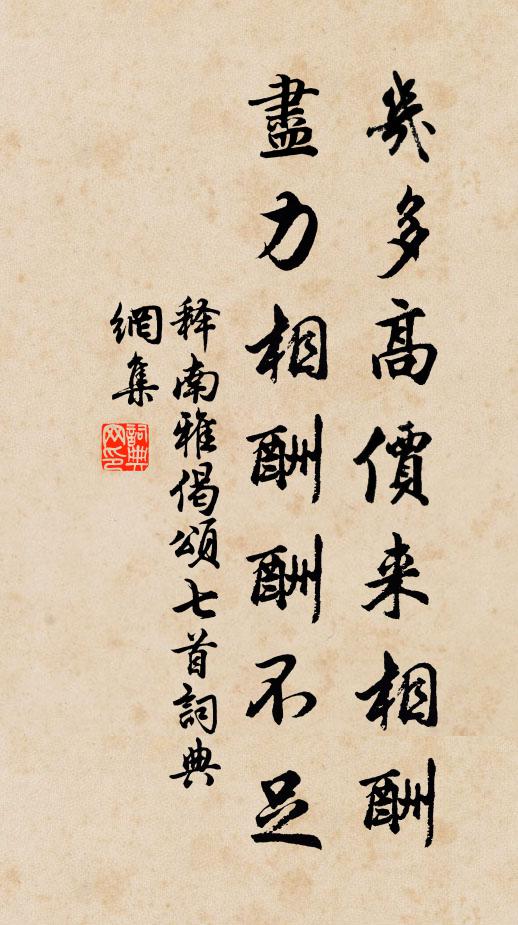 幾多高價来相酬
盡力相酬酬不足
释南雅偈頌七首詞典
網集
詞典
网印